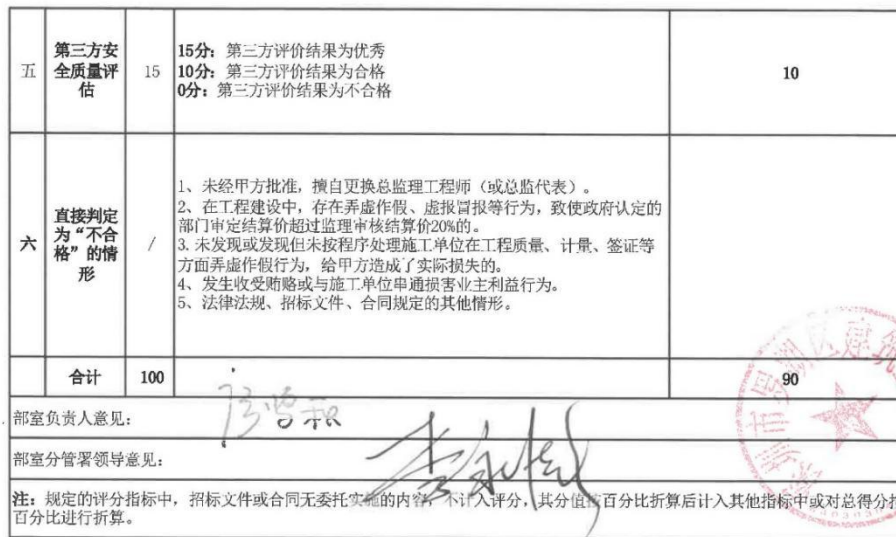 五
第三方安
全质量评
估
15
15分：第三方评价结果为优秀
10分：第三方评价结果为合格
0分：第三方评价结果为不合格
10
六
直接判定
为“不合
格”的情
形
/
1、未经甲方批准，擅自更换总监理工程师（或总监代表）。
2、在工程建设中，存在弄虚作假、虚报冒报等行为，致使政府认定的
部门审定结算价超过监理审核结算价20%的。
3. 未发现或发现但未按程序处理施工单位在工程质量、计量、签证等
方面弄虚作假行为，给甲方造成了实际损失的。
4、发生收受贿赂或与施工单位串通损害业主利益行为。
5、法律法规、招标文件、合同规定的其他情形。
合计
100
90
部室负责人意见：
部室分管署领导意见：
注：规定的评分指标中，招标文件或合同无委托实施的内容，不计入评分，其分值按百分比折算后计入其他指标中或对总得分按
百分比进行折算。
圳市罗湖区建筑